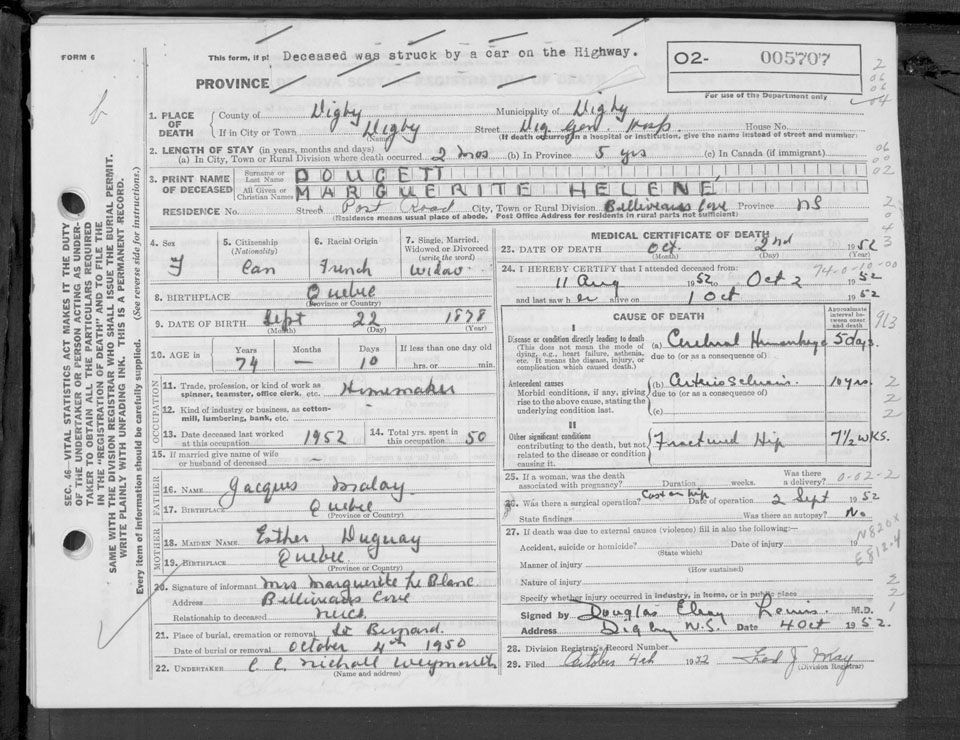 FORM 6
This form, if pl Deceased was struck by a car on the Highway.
PROVINCE
02- 005707
For use of the Department only
2
06
06
04
1. PLACE OF DEATH
County of Digby Municipality of Digby
If in City or Town Digby Street Dig. Gen. Hosp House No.
(Name) (If death occurred in a hospital or institution, give the name instead of street and number)
2. LENGTH OF STAY (in years, months and days)
(a) In City, Town or Rural Division where death occurred 2 mos (b) In Province 5 yrs (c) In Canada (if immigrant)
06
00
02
3. PRINT NAME OF DECEASED
Surname or Last Name DOUCETT
All Given or Christian Names MARGUERITE HELENE
RESIDENCE No. Street Post Road City, Town or Rural Division Belliveaus Cove Province NS
(Residence means usual place of abode. Post Office Address for residents in rural parts not sufficient)
2
0
4
3
SEC. 46—VITAL STATISTICS ACT MAKES IT THE DUTY
OF THE UNDERTAKER OR PERSON ACTING AS UNDER-
TAKER TO OBTAIN ALL THE PARTICULARS REQUIRED
IN THE "REGISTRATION OF DEATH" AND TO FILE THE
SAME WITH THE DIVISION REGISTRAR WHO SHALL ISSUE THE BURIAL PERMIT.
WRITE PLAINLY WITH UNFADING INK. THIS IS A PERMANENT RECORD.
Every item of information should be carefully supplied. (See reverse side for instructions.)
4. Sex F
5. Citizenship (Nationality) Can
6. Racial Origin French
7. Single, Married, Widowed or Divorced (write the word) Widow
8. BIRTHPLACE Quebec
(Province or Country)
9. DATE OF BIRTH Sept 22 1878
(Month) (Day) (Year)
10. AGE in Years Months Days If less than one day old
74 — 10 hrs. or min.
OCCUPATION
11. Trade, profession or kind of work as spinner, teamster, office clerk, etc. Homemaker
12. Kind of industry or business, as cotton-mill, lumbering, bank, etc.
13. Date deceased last worked at this occupation 1952
14. Total yrs. spent in this occupation 50
15. If married give name of wife or husband of deceased —
FATHER
16. NAME Jacques
17. BIRTHPLACE Quebec
(Province or Country)
MOTHER
18. MAIDEN NAME Esther Duguay
19. BIRTHPLACE Quebec
(Province or Country)
20. Signature of informant Mrs Marguerite Le Blanc
Address Belliveaus Cove
Relationship to deceased niece
21. Place of burial, cremation or removal St Bernard.
Date of burial or removal October 4th 1950
22. UNDERTAKER C. C. Nichall Weymouth
(Name and address)
MEDICAL CERTIFICATE OF DEATH
23. DATE OF DEATH Oct. 2nd 1952
(Month) (Day) (Year)
24. I HEREBY CERTIFY that I attended deceased from: 74-0-10-00
11 Aug 1952 to Oct 2 1952
and last saw her alive on 1 Oct 1952
CAUSE OF DEATH
Approximate interval between onset and death
I
Disease or condition directly leading to death
(This does not mean the mode of dying, e.g., heart failure, asthenia, etc. It means the disease, injury, or complication which caused death.)
(a) Cerebral Hemorrhage 5 days.
due to (or as a consequence of)
913
Antecedent causes
Morbid conditions, if any, giving rise to the above cause, stating the underlying condition last.
(b) Arteriosclerosis. 10 yrs.
due to (or as a consequence of)
(c)
2
2
2
II
Other significant conditions
contributing to the death, but not related to the disease or condition causing it.
Fractured Hip 7½ WKS.
25. If a woman, was the death associated with pregnancy? Duration weeks Was there a delivery? 0-02-2
26. Was there a surgical operation? Cast on hip Date of operation 2 Sept 1952
State findings Was there an autopsy? No
27. If death was due to external causes (violence) fill in also the following:—
Accident, suicide or homicide? Date of injury 19
(State which)
N820X
E812.4
Manner of injury
(How sustained)
Nature of injury
Specify whether injury occurred in industry, in home, or in public place
2
2
1
Signed by Douglas Elroy Lewis. M.D.
Address Digby N.S. Date 4 Oct 1952.
28. Division Registrar's Record Number
29. Filed October 4th 1952 J May
(Division Registrar)